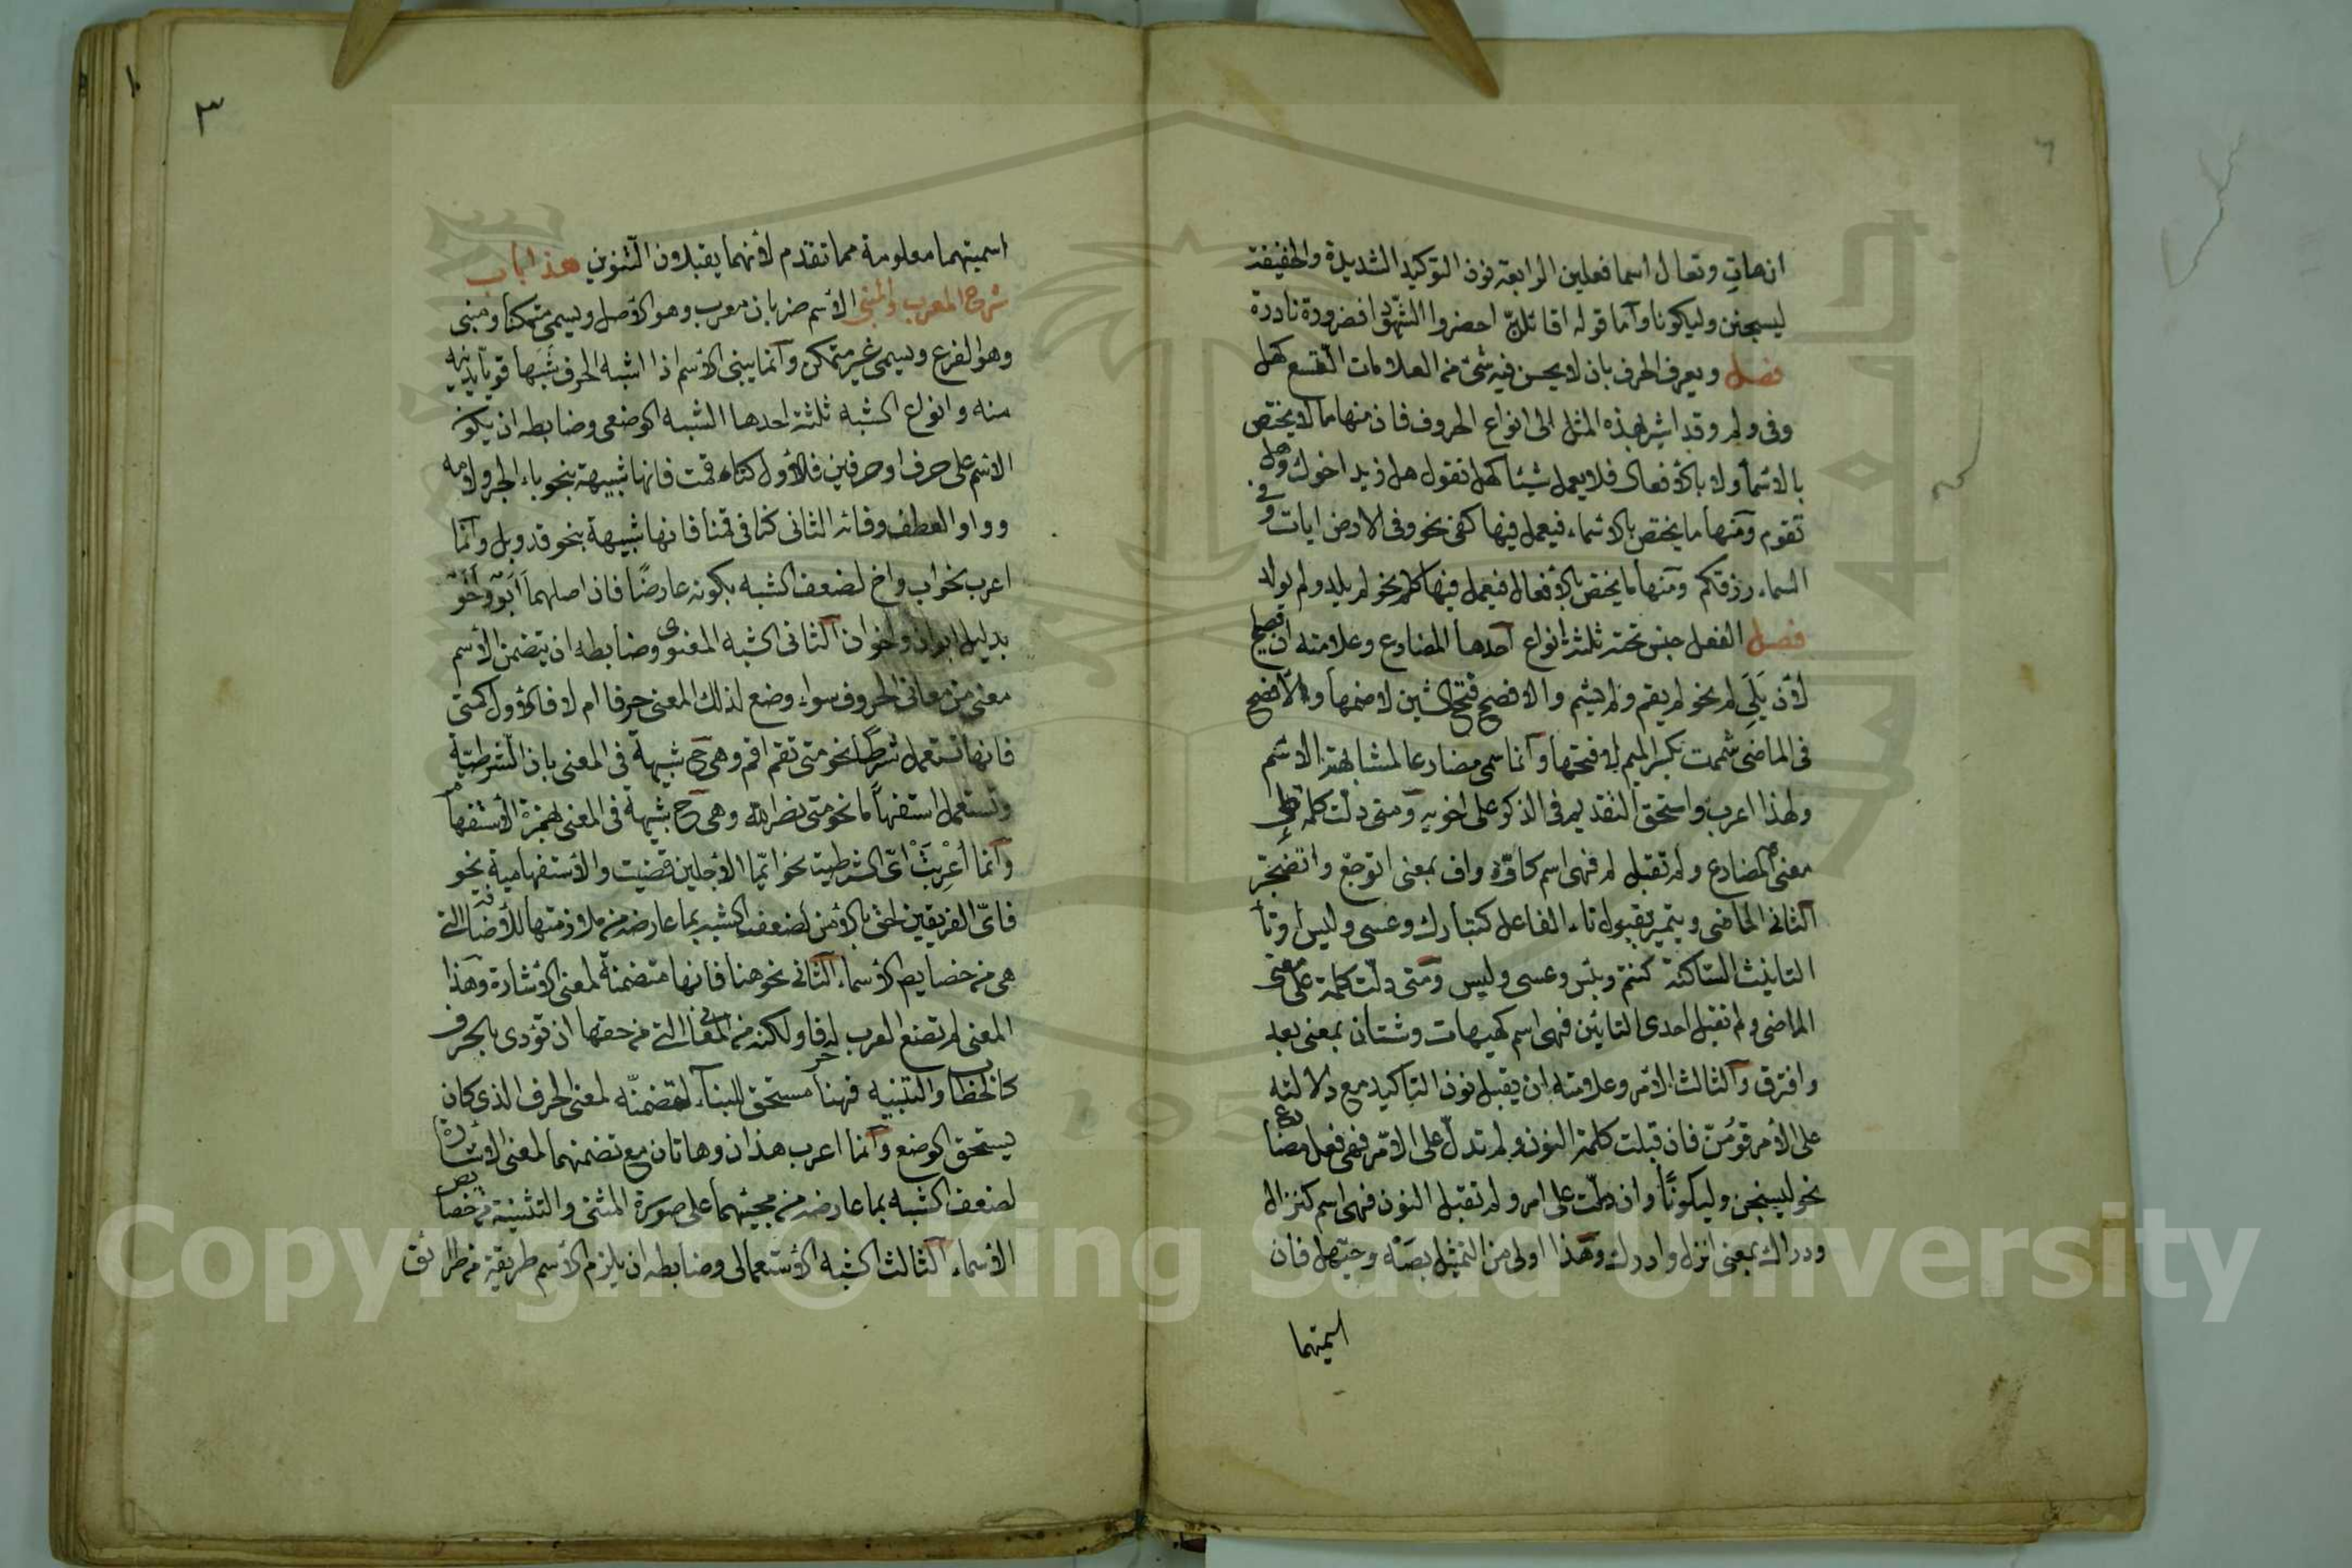 ان هات وتعال اسما فعلين الرابعة نون التوكيد الشديدة والخفيفة
ليسجنن وليكونا واما قوله اقائلن احضروا الشهودا فضرورة نادرة
فصل ويعرف الحرف بان لا يحسن فيه شئ من العلامات التسع كهل
وفى ولم وقد اشير بهذه المثل الى انواع الحروف فان منها ما لا يختص
بالاسماء ولا بالافعال فلا يعمل شيئا كهل تقول هل زيد اخوك وهل
تقوم ومنها ما يختص بالاسماء فيعمل فيها كفى نحو وفى الارض ايات وفى
السماء رزقكم ومنها ما يختص بالافعال فيعمل فيها كلم نحو لم يلد ولم يولد
فصل الفعل جنس تحته ثلثة انواع احدها المضارع وعلامته ان يصلح
لان يلى لم نحو لم يقم ولم يشم والافصح فتح الشين لا ضمها والافصح
فى الماضى شممت بكسر الميم لا فتحها وانما سمى مضارعا لمشابهته الاسم
ولهذا اعرب واستحق التقديم فى الذكر على اخويه ومتى دلت كلمة على
معنى المضارع ولم تقبل لم فهى اسم كاوه واف بمعنى اتوجع واتضجر
الثانى الماضى ويتميز بقبول تاء الفاعل كتبارك وعسى وليس او تا
التانيث الساكنة كنعم وبئس وعسى وليس ومتى دلت كلمة على معنى
الماضى ولم تقبل احدى التائين فهى اسم كهيهات وشتان بمعنى بعد
وافترق والثالث الامر وعلامته ان يقبل نون التاكيد مع دلالته
على الامر قومن فان قبلت كلمة النون ولم تدل على الامر فهى فعل مضارع
نحو ليسجنن وليكونا وان دلت على امر ولم تقبل النون فهى اسم كنزال
ودراك بمعنى انزل وادرك وهذا اولى من التمثيل بصه وحيهل فان
اسميتهما
٣
اسميتهما معلومة مما تقدم لأنهما يقبلان التنوين هذا باب
شرح المعرب والمبنى الاسم ضربان معرب وهو الاصل ويسمى متمكنا ومبنى
وهو الفرع ويسمى غير متمكن وانما يبنى الاسم اذا اشبه الحرف شبها قويا يدنيه
منه وانواع الشبه ثلثة احدها الشبه الوضعى وضابطه ان يكون
الاسم على حرف او حرفين فالاول كتاء قمت فانها شبيهة بنحو باء الجر ولامه
وواو العطف وفائه الثانى كنا فى قمنا فانها شبيهة بنحو قد وبل وانما
اعرب نحو اب واخ لضعف الشبه بكونه عارضا فان اصلهما ابو واخو
بدليل ابوان واخوان الثانى الشبه المعنوى وضابطه ان يتضمن الاسم
معنى من معانى الحروف سواء وضع لذلك المعنى حرفا ام لا فالاول كمتى
فانها تستعمل شرطا نحو متى تقم اقم وهى ح شبيهة فى المعنى بان الشرطية
وتستعمل استفهاما نحو متى نصر الله وهى ح شبيهة فى المعنى بهمزة الاستفهام
وانما أعربت اى الشرطية نحو ايما الاجلين قضيت والاستفهامية نحو
فاى الفريقين احق بالامن لضعف الشبه بما عارضه من ملازمتها للاضافة التى
هى من خصايص الاسماء الثانى نحو هنا فانها متضمنة لمعنى الاشارة وهذا
المعنى لم تضع العرب له حرفا ولكنه من المعانى التى من حقها ان تؤدى بالحرف
كالخطاب والتنبيه فهنا مستحق للبناء لتضمنه لمعنى الحرف الذى كان
يستحق الوضع وانما اعرب هذان وهاتان مع تضمنهما لمعنى الاشارة
لضعف الشبه بما عارضه من مجيئهما على صورة المثنى والتثنية من خصايص
الاسماء الثالث الشبه الاستعمالى وضابطه ان يلزم الاسم طريقة من طرائق
Copyright © King Saud University